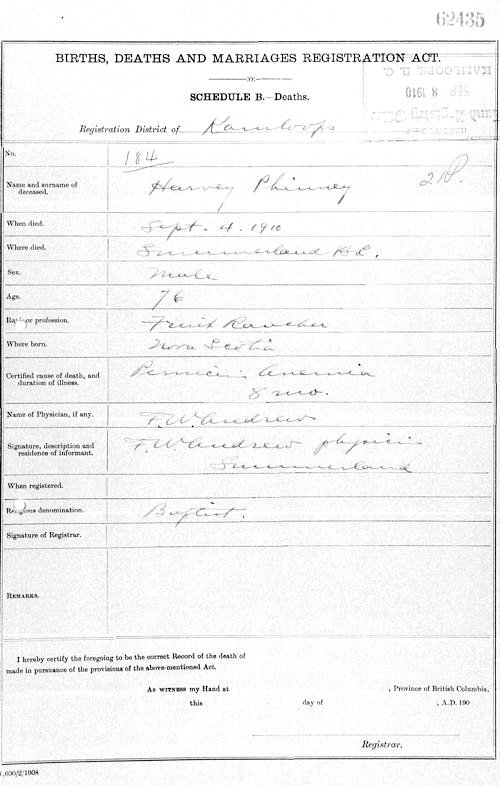 62435
BIRTHS, DEATHS AND MARRIAGES REGISTRATION ACT.
SCHEDULE B.—Deaths.
KAMLOOPS, B. C.
SEP 8 1910
Registration District of Kamloops
No. 184
Name and surname of deceased. Harvey Phinney
When died. Sept. 4. 1910
Where died. Summerland B.C.
Sex. Male
Age. 76
Rank or profession. Fruit Rancher
Where born. Nova Scotia
Certified cause of death, and duration of illness. Pernicious Anemia
8 mo.
Name of Physician, if any. F.W. Andrew
Signature, description and residence of informant. F.W. Andrew physician
Summerland
When registered.
Religious denomination. Baptist.
Signature of Registrar.
REMARKS.
I hereby certify the foregoing to be the correct Record of the death of
made in pursuance of the provisions of the above-mentioned Act.
AS WITNESS my Hand at , Province of British Columbia,
this day of , A.D. 190
Registrar.
1,000/2/1908